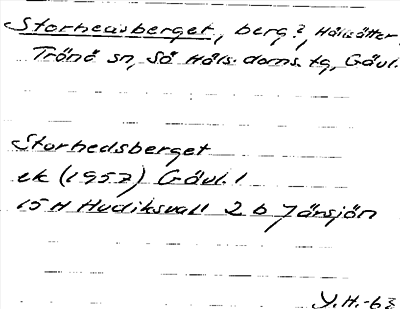 Storhedsberget, berg?, Hälsätter,
Trönö sn, Sö Häls. doms. tg, Gävl.
Storhedsberget
ek (1957) Gävl. l
15 H Hudiksvall 2 b Tänsjön
Y.H.-63